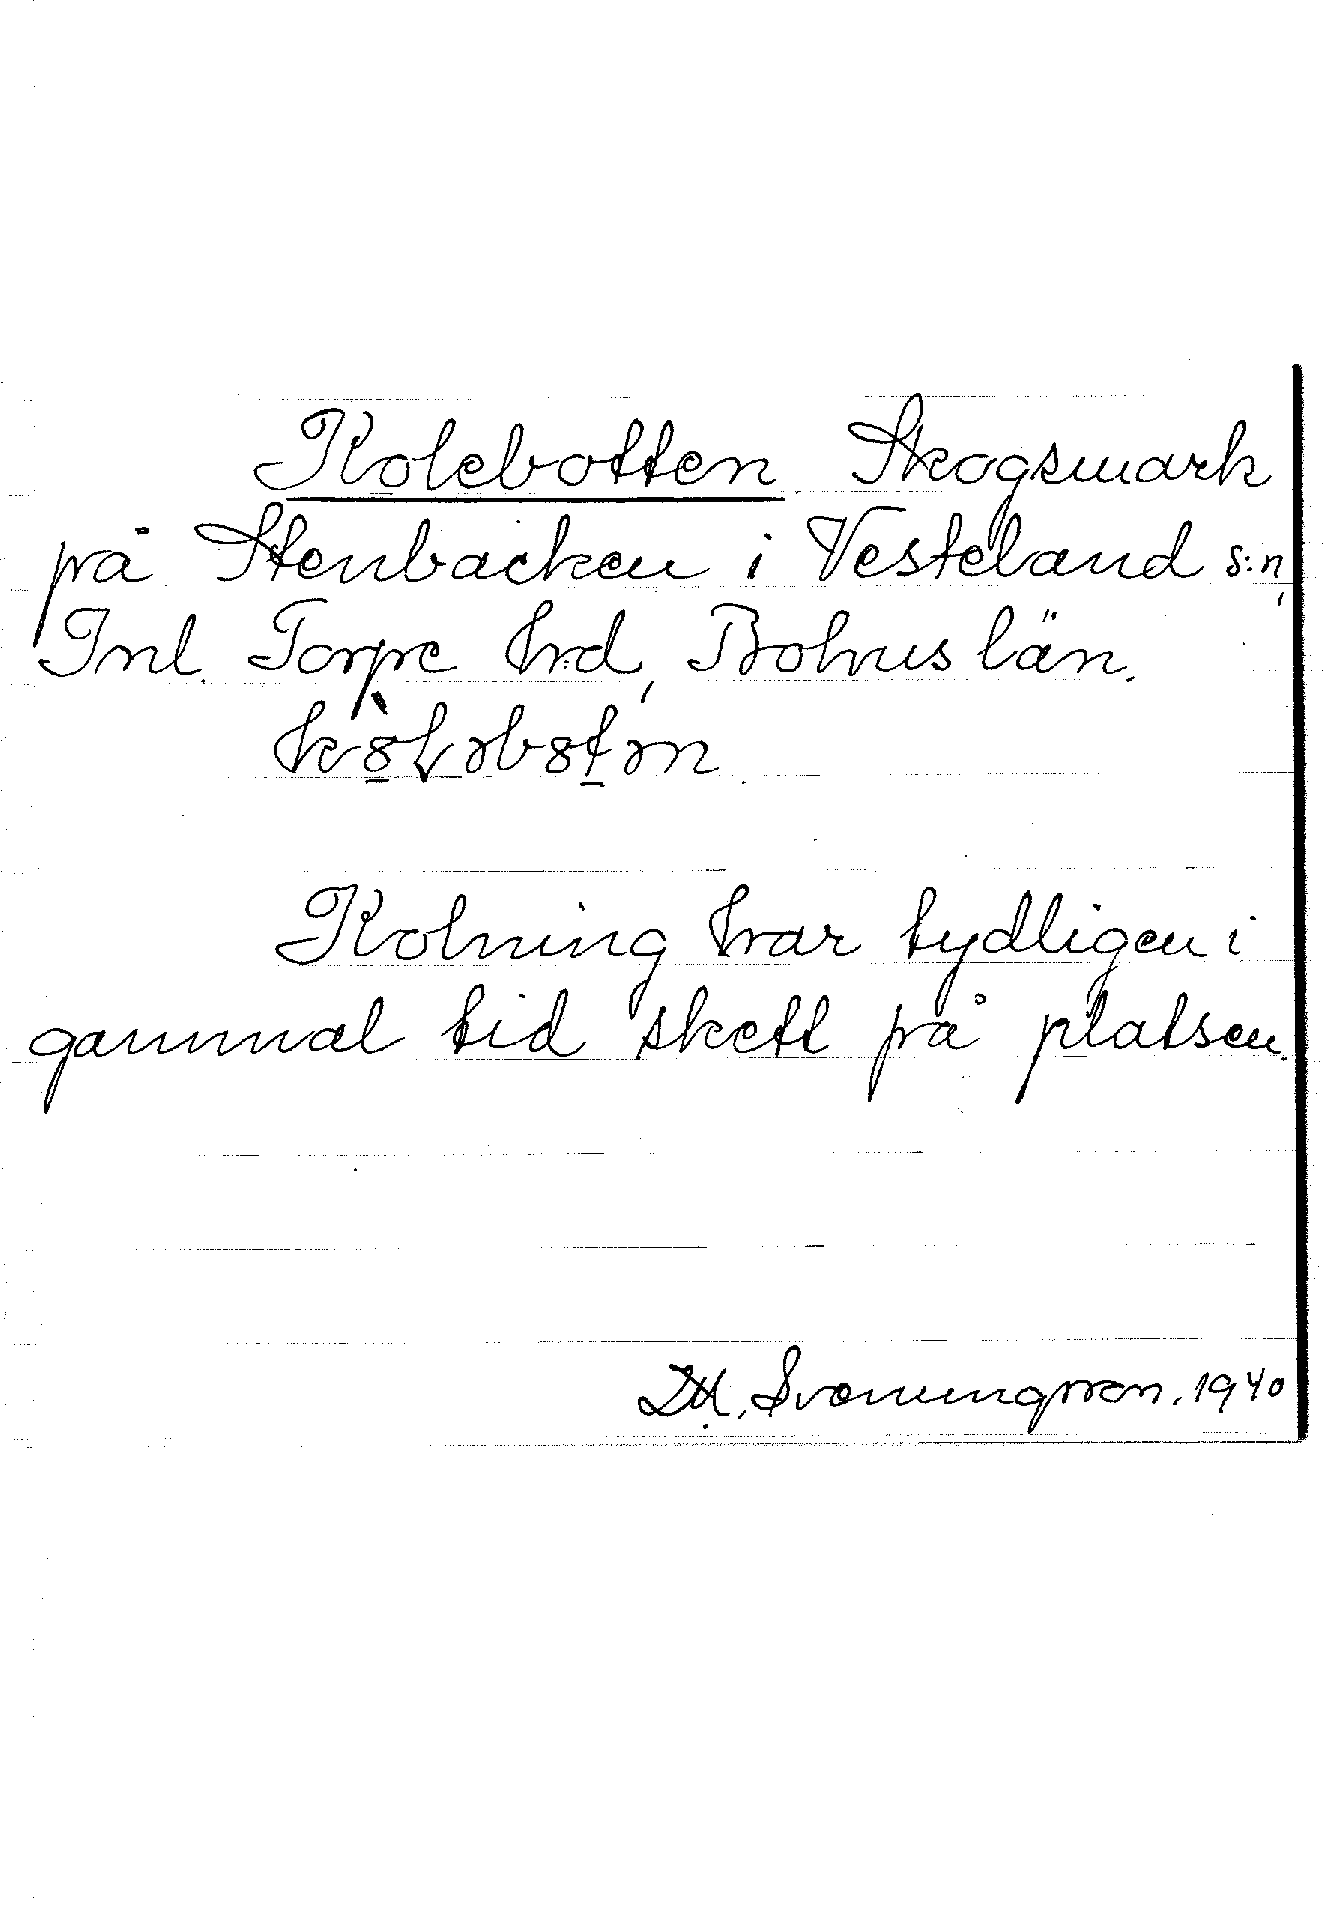 Kolebotten Skogsmark
på Stenbacken i Vesteland s:n,
Inl. Torpe hrd, Bohuslän.
Kolning har tydligen i
gammal tid skett på platsen.
Svenningsson. 1940